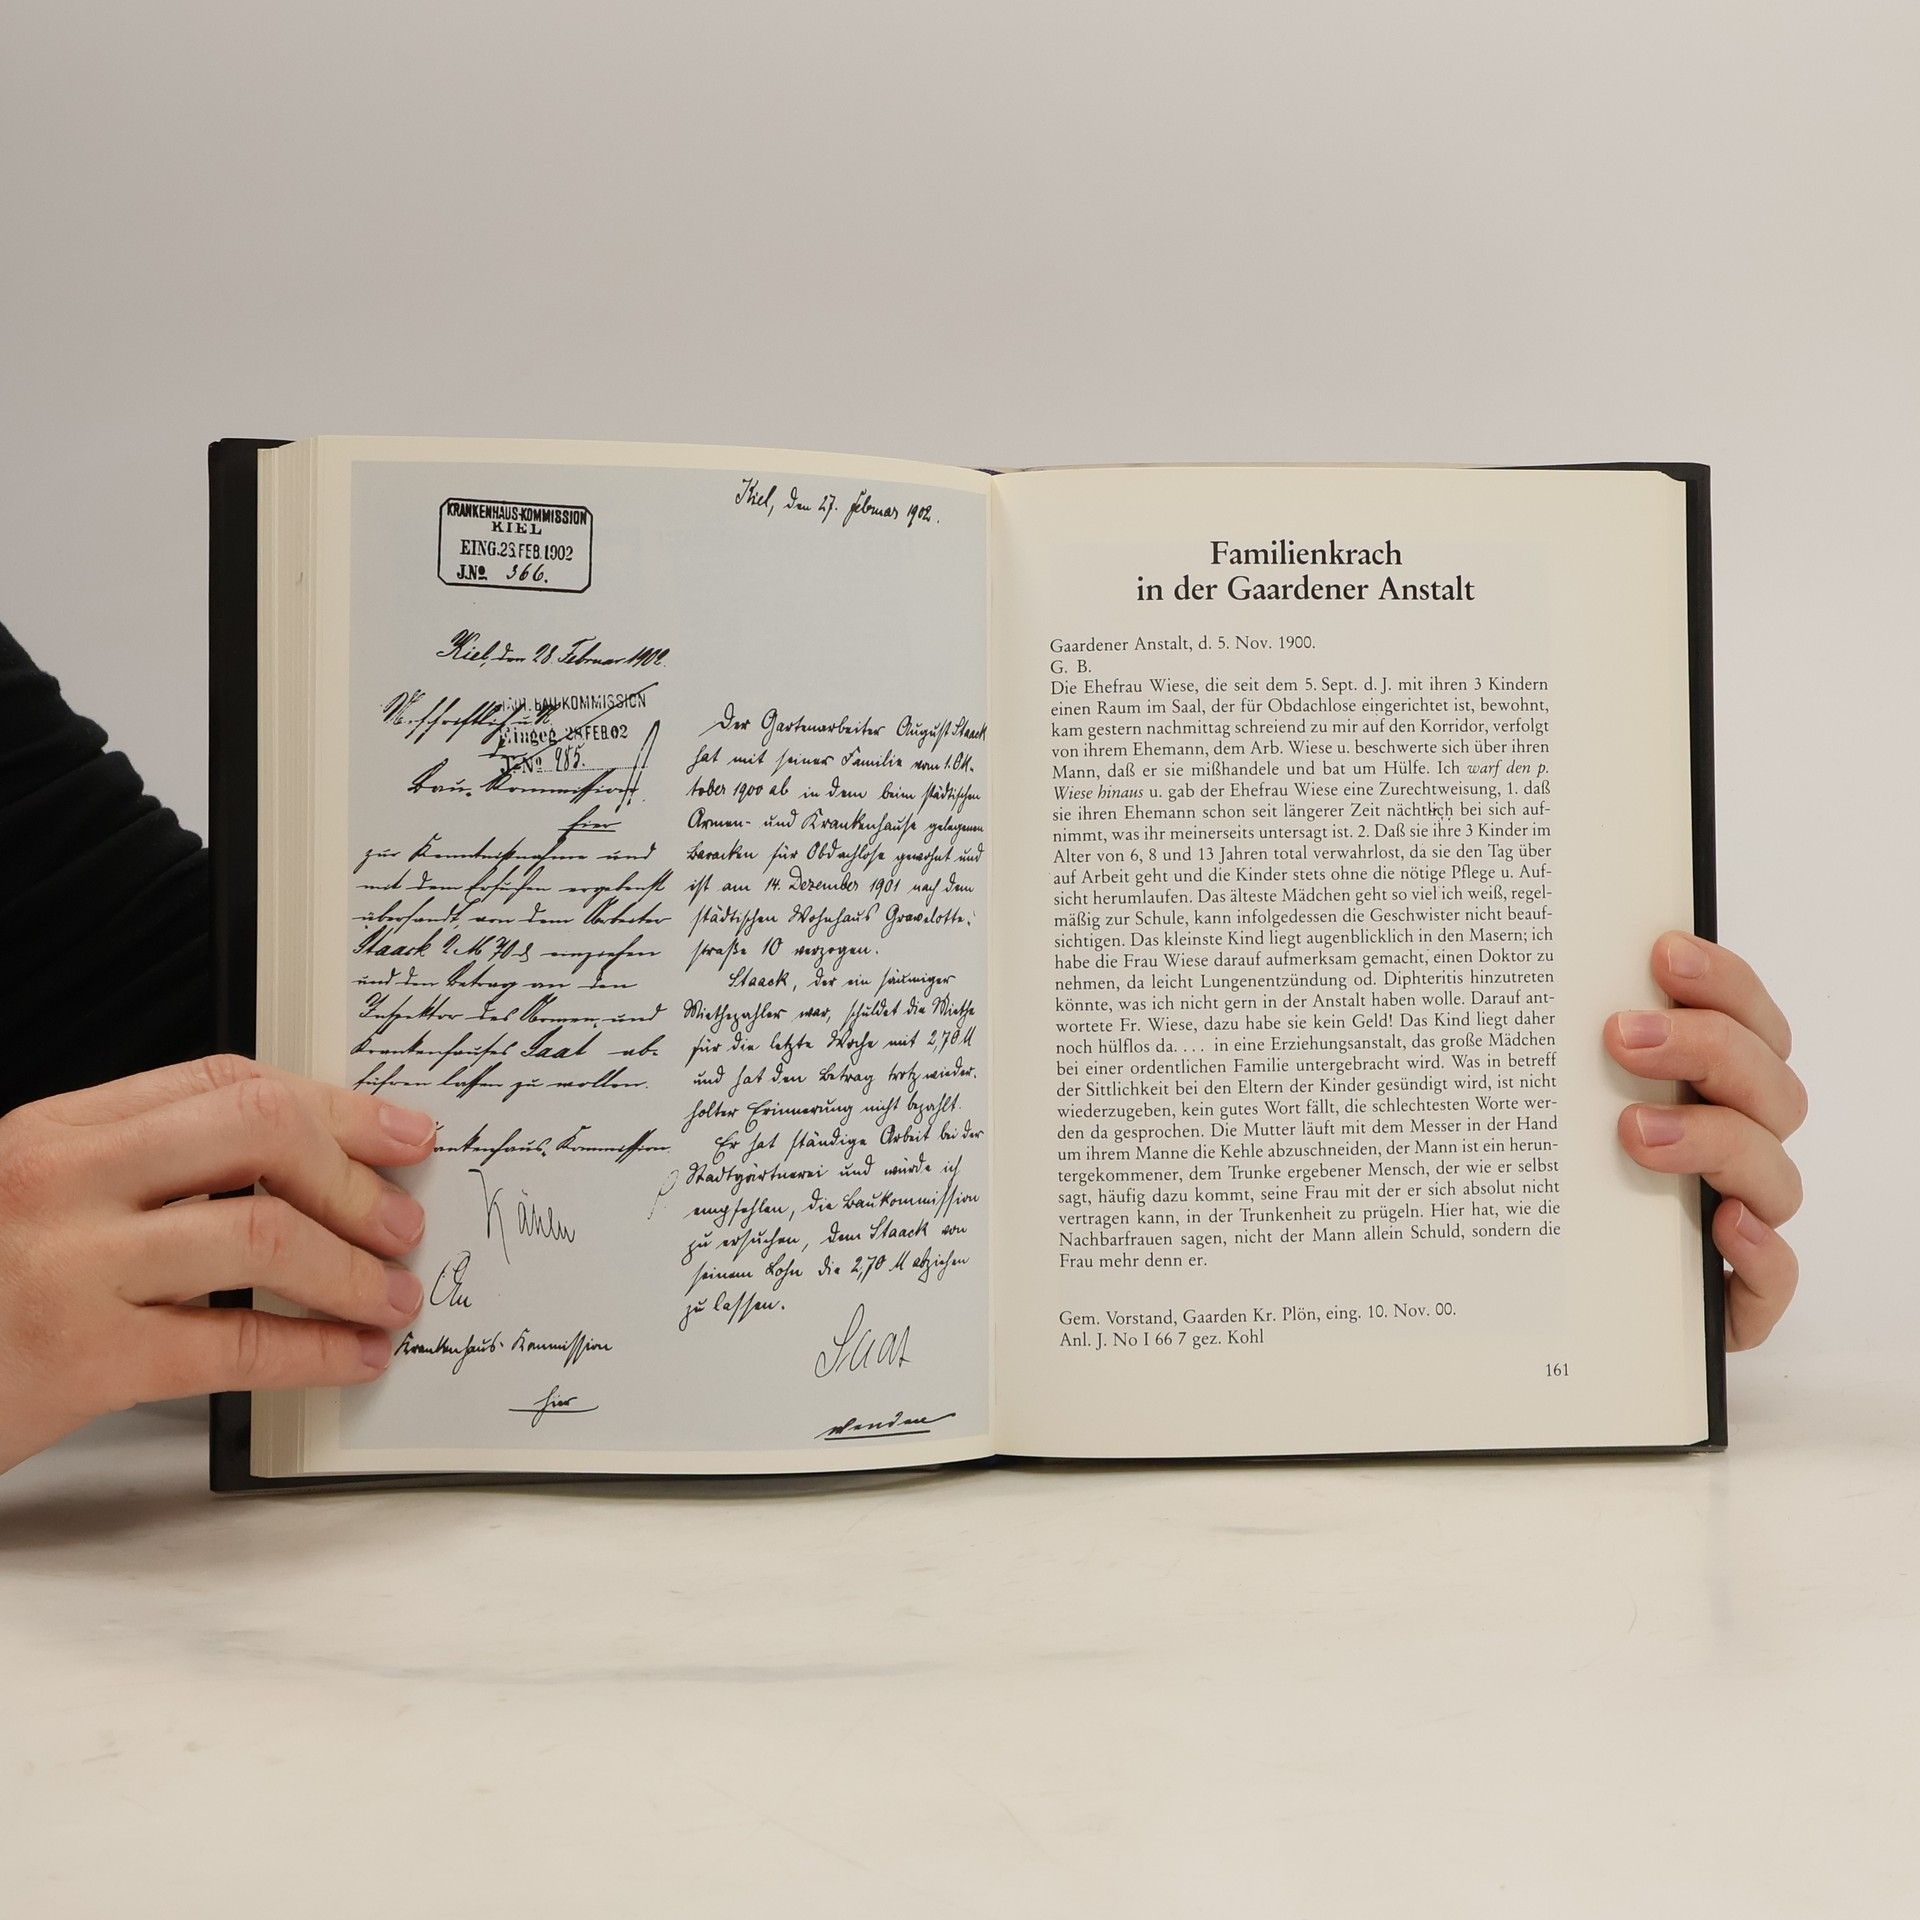 KRANKENHAUS-KOMMISSION
KIEL
EING. 28. FEB. 1902
J.No. 366.
Kiel, den 28. Februar 1902.
BAUKOMMISSION
Eingeg. 28. FEB. 02
J. No. 985.
Bau-Kommission,
hier
zur Kenntnißnahme und
mit dem Ersuchen ergebenst
übersandt, von dem Arbeiter
Staack 2 M 70 einziehen
und den Betrag an den
Inspektor des Armen- und
Krankenhauses Saat ab-
führen lassen zu wollen.
Kommission.
An
Krankenhaus-Kommission
hier
Kiel, den 27. Februar 1902.
Der Gartenarbeiter August Staack
hat mit seiner Familie vom 1. Ok-
tober 1900 ab in dem beim städtischen
Armen- und Krankenhause gelegenen
Baracken für Obdachlose gewohnt und
ist am 14. Dezember 1901 nach dem
städtischen Wohnhaus Gravelotte-
straße 10 verzogen.
Staack, der ein säumiger
Miethezahler war, schuldet die Miethe
für die letzte Woche mit 2,70 M
und hat den Betrag trotz wieder-
holter Erinnerung nicht bezahlt.
Er hat ständige Arbeit bei der
Stadtgärtnerei und würde ich
empfehlen, die Baukommission
zu ersuchen, dem Staack von
seinem Lohn die 2,70 M abziehen
zu lassen.
Saat
wenden
Familienkrach
in der Gaardener Anstalt
Gaardener Anstalt, d. 5. Nov. 1900.
G. B.
Die Ehefrau Wiese, die seit dem 5. Sept. d. J. mit ihren 3 Kindern
einen Raum im Saal, der für Obdachlose eingerichtet ist, bewohnt,
kam gestern nachmittag schreiend zu mir auf den Korridor, verfolgt
von ihrem Ehemann, dem Arb. Wiese u. beschwerte sich über ihren
Mann, daß er sie mißhandele und bat um Hülfe. Ich warf den p.
Wiese hinaus u. gab der Ehefrau Wiese eine Zurechtweisung, 1. daß
sie ihren Ehemann schon seit längerer Zeit nächtlich bei sich auf-
nimmt, was ihr meinerseits untersagt ist. 2. Daß sie ihre 3 Kinder im
Alter von 6, 8 und 13 Jahren total verwahrlost, da sie den Tag über
auf Arbeit geht und die Kinder stets ohne die nötige Pflege u. Auf-
sicht herumlaufen. Das älteste Mädchen geht so viel ich weiß, regel-
mäßig zur Schule, kann infolgedessen die Geschwister nicht beauf-
sichtigen. Das kleinste Kind liegt augenblicklich in den Masern; ich
habe die Frau Wiese darauf aufmerksam gemacht, einen Doktor zu
nehmen, da leicht Lungenentzündung od. Diphteritis hinzutreten
könnte, was ich nicht gern in der Anstalt haben wolle. Darauf ant-
wortete Fr. Wiese, dazu habe sie kein Geld! Das Kind liegt daher
noch hülflos da. . . . in eine Erziehungsanstalt, das große Mädchen
bei einer ordentlichen Familie untergebracht wird. Was in betreff
der Sittlichkeit bei den Eltern der Kinder gesündigt wird, ist nicht
wiederzugeben, kein gutes Wort fällt, die schlechtesten Worte wer-
den da gesprochen. Die Mutter läuft mit dem Messer in der Hand
um ihrem Manne die Kehle abzuschneiden, der Mann ist ein herun-
tergekommener, dem Trunke ergebener Mensch, der wie er selbst
sagt, häufig dazu kommt, seine Frau mit der er sich absolut nicht
vertragen kann, in der Trunkenheit zu prügeln. Hier hat, wie die
Nachbarfrauen sagen, nicht der Mann allein Schuld, sondern die
Frau mehr denn er.
Gem. Vorstand, Gaarden Kr. Plön, eing. 10. Nov. 00.
Anl. J. No I 66 7 gez. Kohl
161